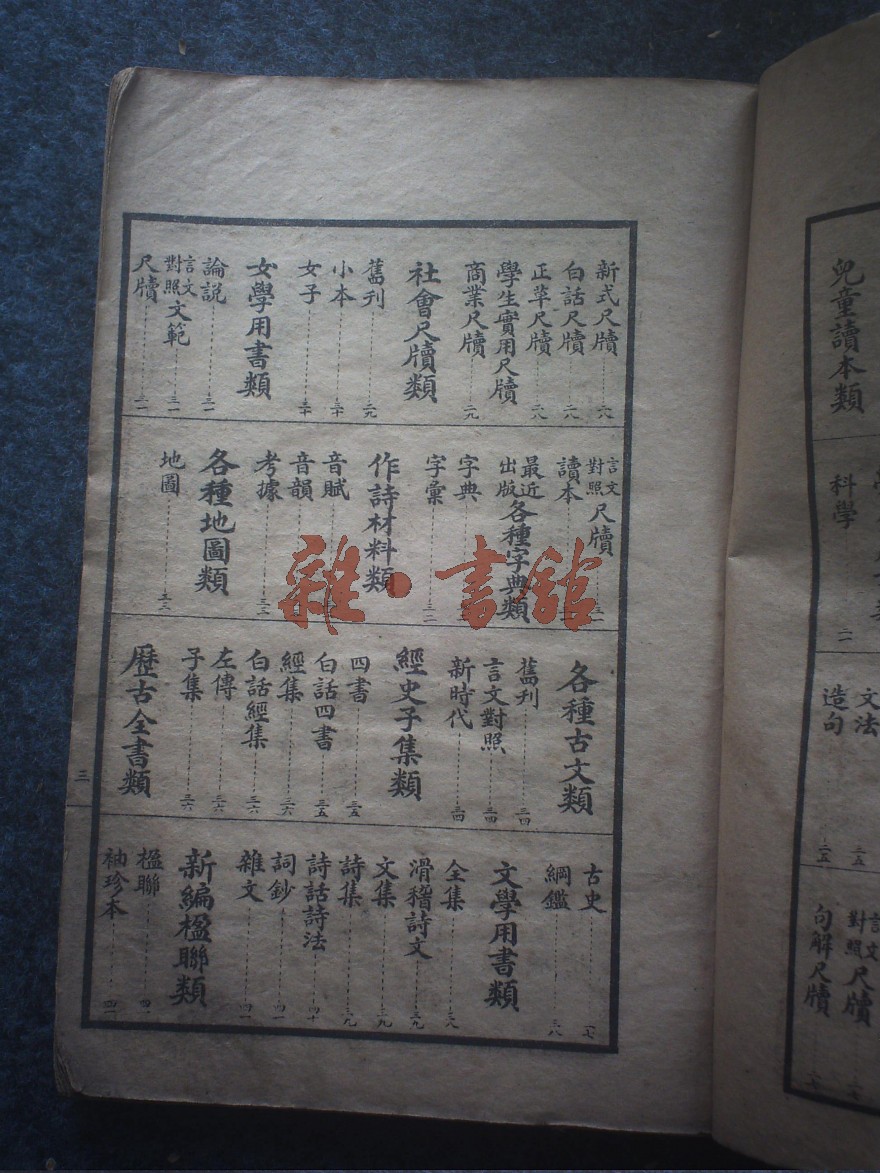 新式尺牘 二六
白話尺牘 二八
正草尺牘 二八
學生實用尺牘
商業尺牘 二九
社會尺牘類
舊刊 二九
小本 三十
女子 三十
女學用書類
論説 三一
言文對照文範 三一
尺牘 三一
言文對照尺牘
讀本
最近出版各種字典類
字典
字彙 三二
作詩材料類
音賦
音韻
考據 三三
各種地圖類
地圖 三三
各種古文類
舊刊 三四
言文對照 三四
新時代 三四
經史子集類
四書 三五
白話四書 三五
經集 三六
白話經集 三六
左傳 三六
子集 三六
歷古全書類
古史
綱鑑 三八
文學用書類
全集 三九
滑稽詩文 三九
文集 三九
詩集 三九
詩話詩法 四十
詞鈔 四一
雜文 四一
新編楹聯類
楹聯 四一
袖珍本 四一
三
兒童讀本類
科學 二一
文法 二五
造句 二五
言文對照尺牘
句解尺牘
雜·書舘